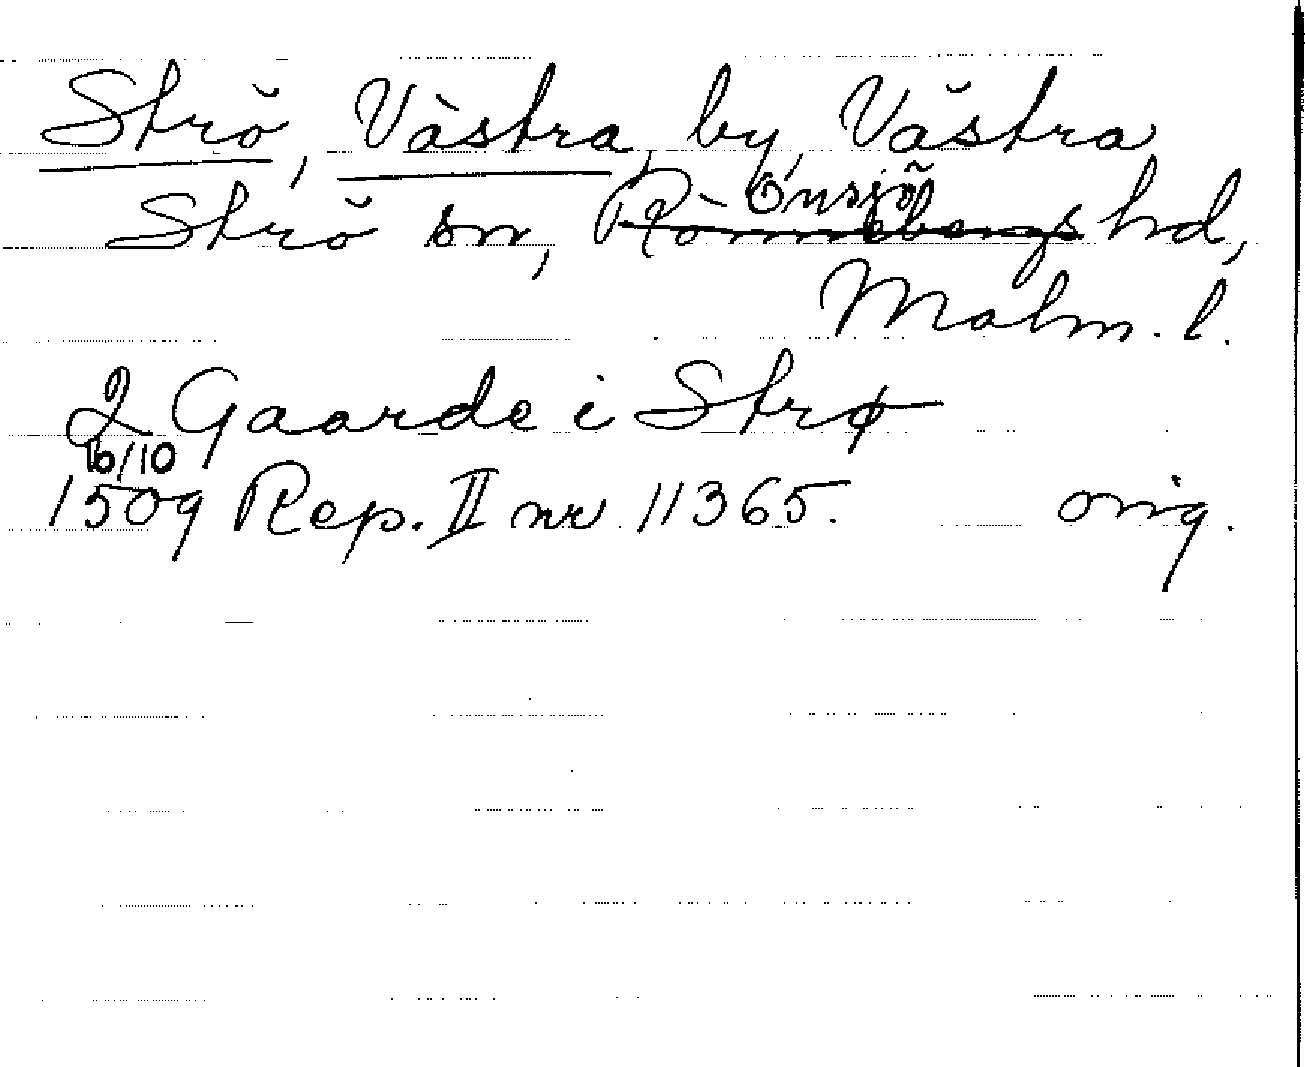 Strö, Västra, by, Västra
Strö sn, Rönnebergs Onsjö hd,
Malm. l.
2 Gaarde i Strø
16/10
1509 Rep. II nr 11365. orig.